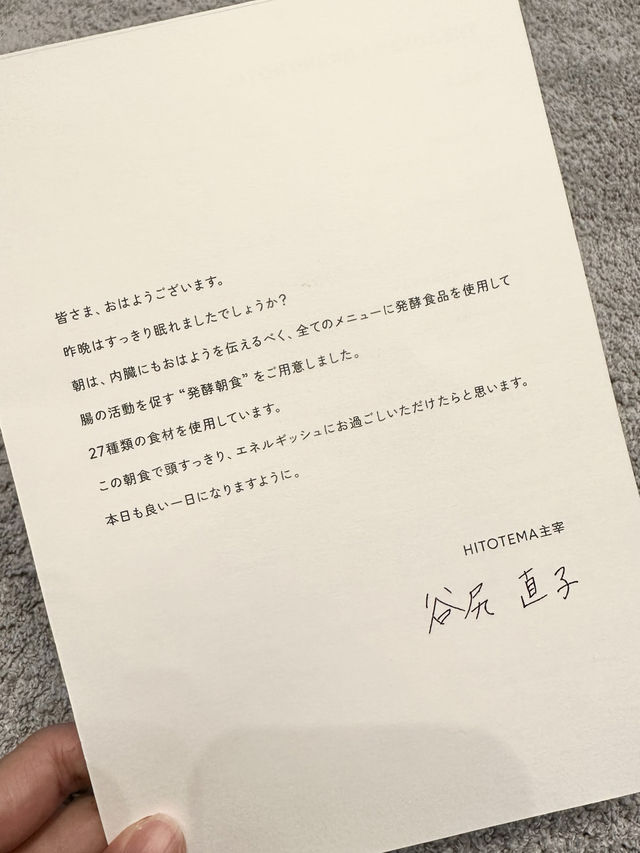 皆さま、おはようございます。
昨晩はすっきり眠れましたでしょうか？
朝は、内臓にもおはようを伝えるべく、全てのメニューに発酵食品を使用して
腸の活動を促す“発酵朝食”をご用意しました。
27種類の食材を使用しています。
この朝食で頭すっきり、エネルギッシュにお過ごしいただけたらと思います。
本日も良い一日になりますように。
HITOTEMA主宰
谷尻 直子